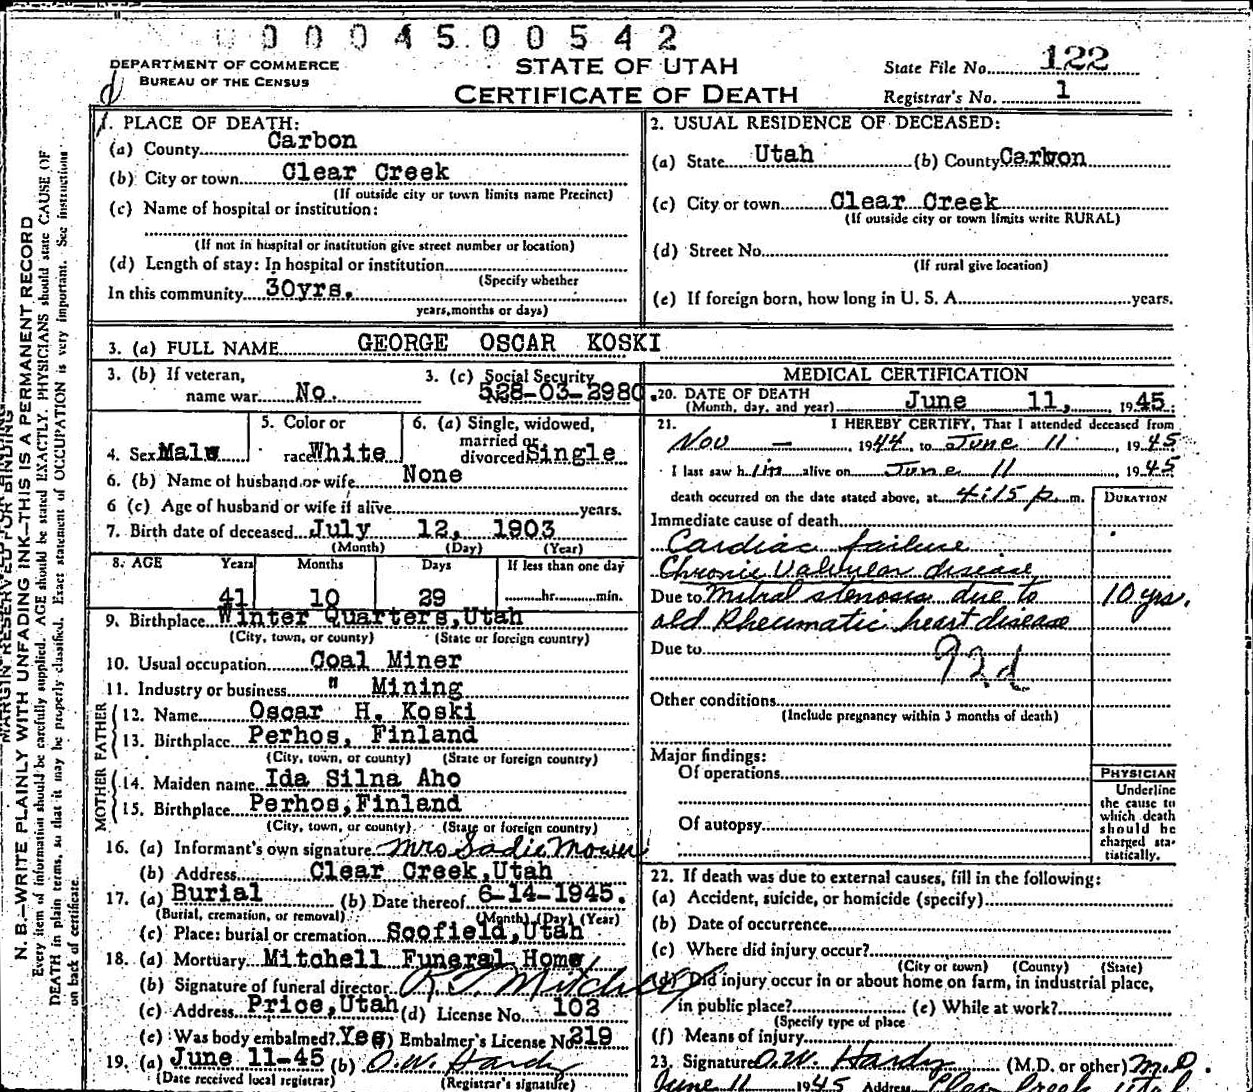 0004500542
DEPARTMENT OF COMMERCE
BUREAU OF THE CENSUS
STATE OF UTAH
CERTIFICATE OF DEATH
State File No. 122
Registrar's No. 1
MARGIN RESERVED FOR BINDING
N. B.—WRITE PLAINLY WITH UNFADING INK—THIS IS A PERMANENT RECORD
Every item of information should be carefully supplied. AGE should be stated EXACTLY. PHYSICIANS should state CAUSE OF
DEATH in plain terms, so that it may be properly classified. Exact statement of OCCUPATION is very important. See instructions
on back of certificate.
1. PLACE OF DEATH:
(a) County Carbon
(b) City or town Clear Creek
(If outside city or town limits name Precinct)
(c) Name of hospital or institution:
(If not in hospital or institution give street number or location)
(d) Length of stay: In hospital or institution
(Specify whether
In this community 30yrs.
years, months or days)
2. USUAL RESIDENCE OF DECEASED:
(a) State Utah (b) County Carbon
(c) City or town Clear Creek
(If outside city or town limits write RURAL)
(d) Street No.
(If rural give location)
(e) If foreign born, how long in U. S. A. years.
3. (a) FULL NAME GEORGE OSCAR KOSKI
3. (b) If veteran,
name war No.
3. (c) Social Security
528-03-2980
4. Sex Male
5. Color or
race White
6. (a) Single, widowed,
married or
divorced Single
6. (b) Name of husband or wife None
6 (c) Age of husband or wife if alive years.
7. Birth date of deceased July 12, 1903
(Month) (Day) (Year)
8. AGE Years Months Days If less than one day
41 10 29 hr. min.
9. Birthplace Winter Quarters, Utah
(City, town, or county) (State or foreign country)
10. Usual occupation Coal Miner
11. Industry or business " Mining
FATHER
12. Name Oscar H. Koski
13. Birthplace Perhos, Finland
(City, town, or county) (State or foreign country)
MOTHER
14. Maiden name Ida Silna Aho
15. Birthplace Perhos, Finland
(City, town, or county) (State or foreign country)
16. (a) Informant's own signature Mrs Sadie Mower
(b) Address Clear Creek, Utah
17. (a) Burial (b) Date thereof 6-14-1945.
(Burial, cremation, or removal) (Month) (Day) (Year)
(c) Place: burial or cremation Scofield, Utah
18. (a) Mortuary Mitchell Funeral Home
(b) Signature of funeral director Mitchell
(c) Address Price, Utah (d) License No. 102
(e) Was body embalmed? Yes Embalmer's License No. 219
19. (a) June 11-45 (b) O.W. Hardy
(Date received local registrar) (Registrar's signature)
MEDICAL CERTIFICATION
20. DATE OF DEATH
(Month, day, and year) June 11, 1945.
21. I HEREBY CERTIFY, That I attended deceased from
Nov — , 1944, to June 11 , 1945
I last saw him alive on June 11 , 1945
death occurred on the date stated above, at 4:15 p. m.
DURATION
Immediate cause of death
Cardiac failure
Chronic Valvular disease
Due to Mitral stenosis due to 10 yrs.
old Rheumatic heart disease
Due to
92d
Other conditions
(Include pregnancy within 3 months of death)
Major findings:
Of operations
Of autopsy
PHYSICIAN
Underline
the cause to
which death
should be
charged sta-
tistically.
22. If death was due to external causes, fill in the following:
(a) Accident, suicide, or homicide (specify)
(b) Date of occurrence
(c) Where did injury occur?
(City or town) (County) (State)
Did injury occur in or about home on farm, in industrial place,
in public place? (e) While at work?
(Specify type of place
(f) Means of injury
23. Signature O.W. Hardy (M.D. or other) M.D.
June 11 1945 Address Clear Creek Utah